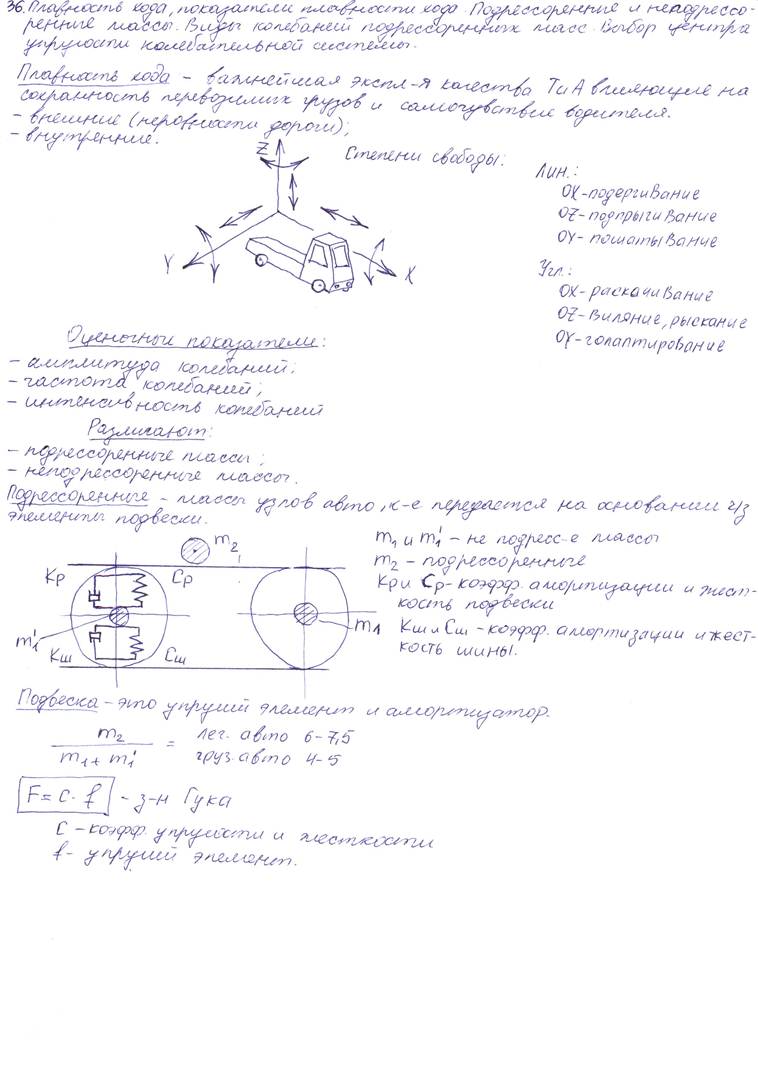 36. Плавность хода, показатели плавности хода. Подрессоренные и неподрессо-
ренные массы. Виды колебаний подрессоренных масс. Выбор центра
упругости колебательной системы.
Плавность хода - важнейшая экспл-я качества ТиА влияющие на
сохранность перевозимых грузов и самочувствие водителя.
- внешние (неровности дороги);
- внутренние.
Степени свободы:
Z
Y
X
Лин.:
OX - подергивание
OZ - подпрыгивание
OY - пошатывание
Угл.:
OX - раскачивание
OZ - виляние, рыскание
OY - голаптирование
Оценочные показатели:
- амплитуда колебаний;
- частота колебаний;
- интенсивность колебаний
Различают:
- подрессоренные массы;
- неподрессоренные массы.
Подрессоренные - массы узлов авто, к-е передается на основании ч/з
элементы подвески.
m2
Kр
Cр
m1'
Kш
Cш
m1
m1 и m1' - не подресс-е массы
m2 - подрессоренные
Kр и Cр - коэфф. амортизации и жест-
кость подвески
Kш и Cш - коэфф. амортизации и жест-
кость шины.
Подвеска - это упругий элемент и амортизатор.
m2 / (m1 + m1') = лег. авто 6-7,5
груз. авто 4-5
F = c · f - з-н Гука
C - коэфф. упругости и жесткости
f - упругий элемент.